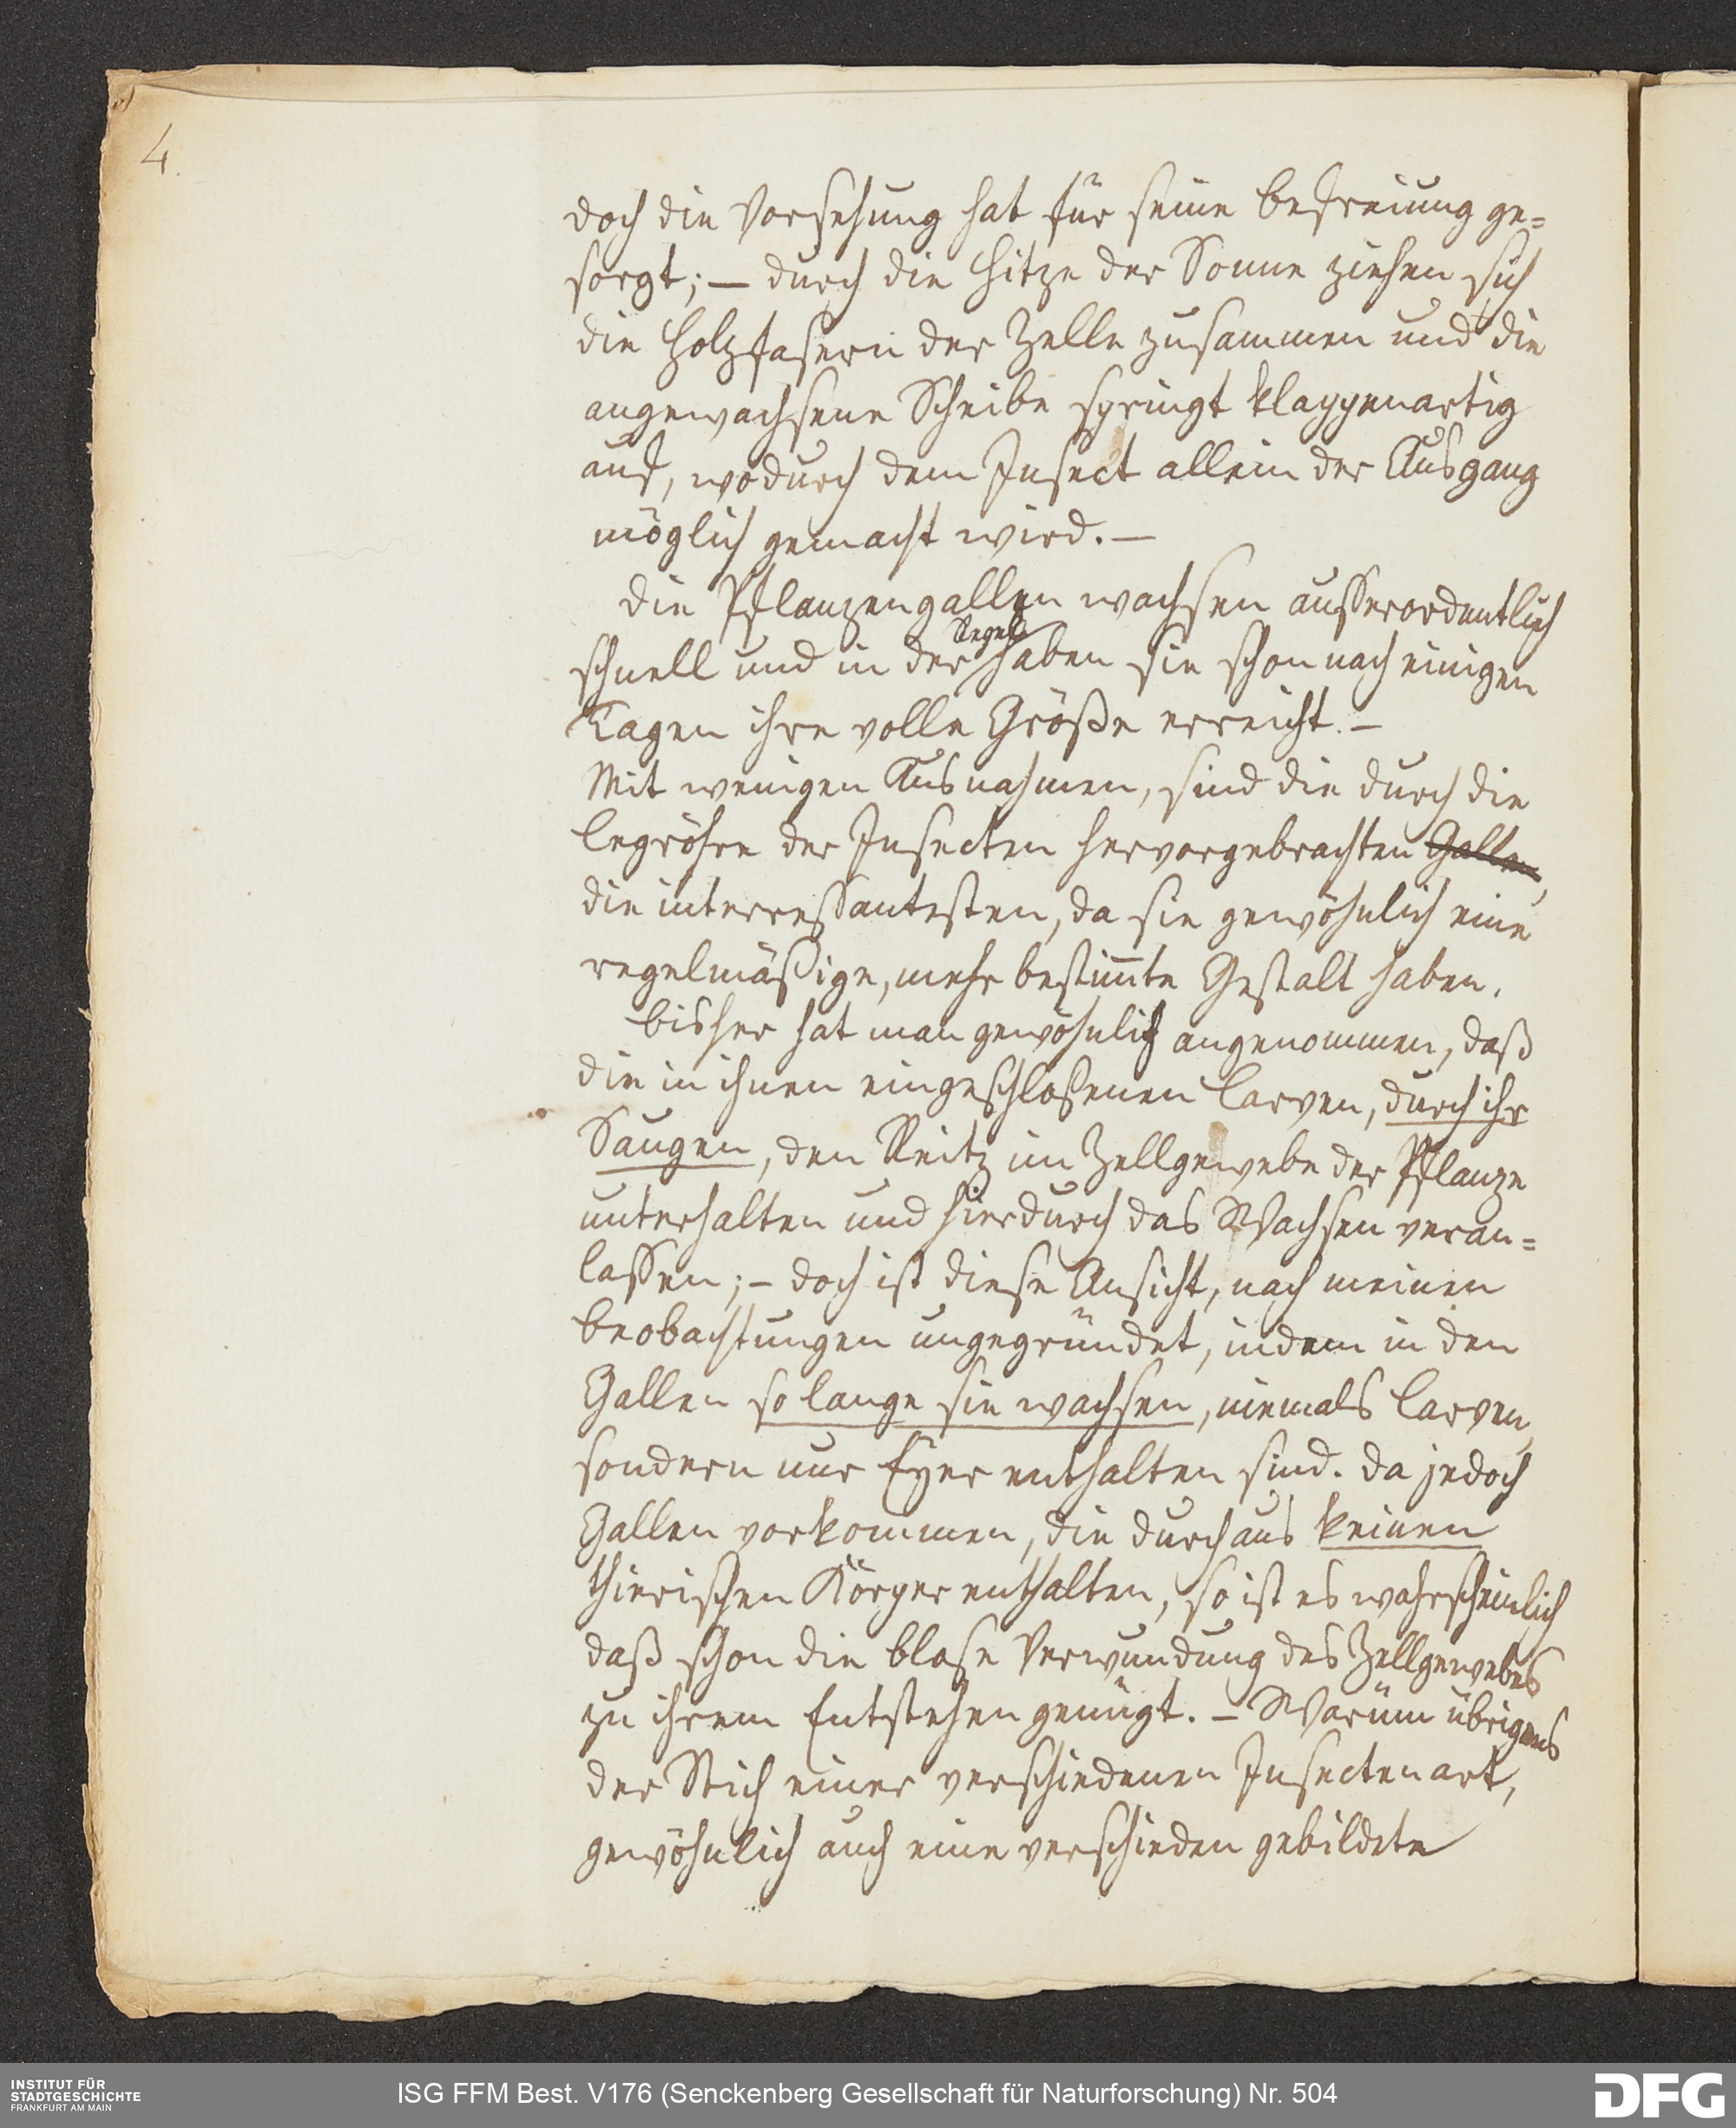 4.
doch die Vorsehung hat für seine Befreiung ge=
sorgt; — durch die Hitze der Sonne ziehen sich
die Holzfasern der Zelle zusammen und die
angewachsene Scheibe springt klappenartig
auf, wodurch dem Insect allein der Ausgang
möglich gemacht wird. —
Die Pflanzengallen wachsen ausserordentlich
Regel
schnell und in der haben sie schon nach einigen
Tagen ihre volle Größe erreicht. —
Mit wenigen Ausnahmen, sind die durch die
Legröhre der Insecten hervorgebrachten Gallen,
die interressantesten, da sie gewöhnlich eine
regelmäßige, mehr bestim̅te Gestalt haben.
Bisher hat man gewöhnlich angenommen, daß
die in ihnen eingeschloßenen Larven, durch ihr
Saugen, den Reitz im Zellgewebe der Pflanze
unterhalten und hierdurch das Wachsen veran=
lassen; – doch ist diese Ansicht, nach meinen
Beobachtungen ungegründet, indem in den
Gallen so lange sie wachsen, niemals Larven,
sondern nur Eyer enthalten sind. Da jedoch
Gallen vorkommen, die durchaus keinen
thierischen Körper enthalten, so ist es wahrscheinlich
daß schon die blose Verwundung des Zellgewebes
zu ihrem Entstehen genügt. – Warum übrigens
der Stich einer verschiedenen Insectenart,
gewöhnlich auch eine verschieden gebildete
INSTITUT FÜR
STADTGESCHICHTE
FRANKFURT AM MAIN
ISG FFM Best. V176 (Senckenberg Gesellschaft für Naturforschung) Nr. 504
DFG